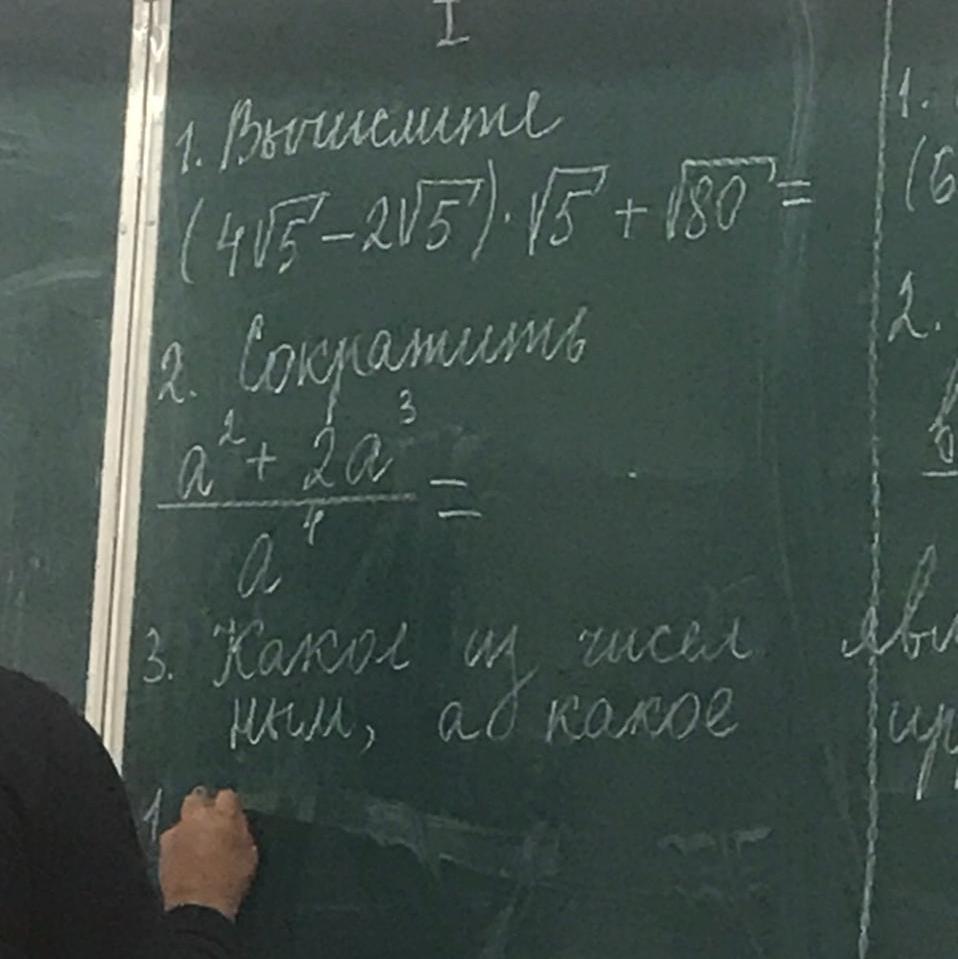 I
1. Вычислите
(4√5 − 2√5) · √5 + √80 =
2. Сократить
a² + 2a³
=
a⁴
3. Какое из чисел
ным, а какое
1
1.
(6
2.